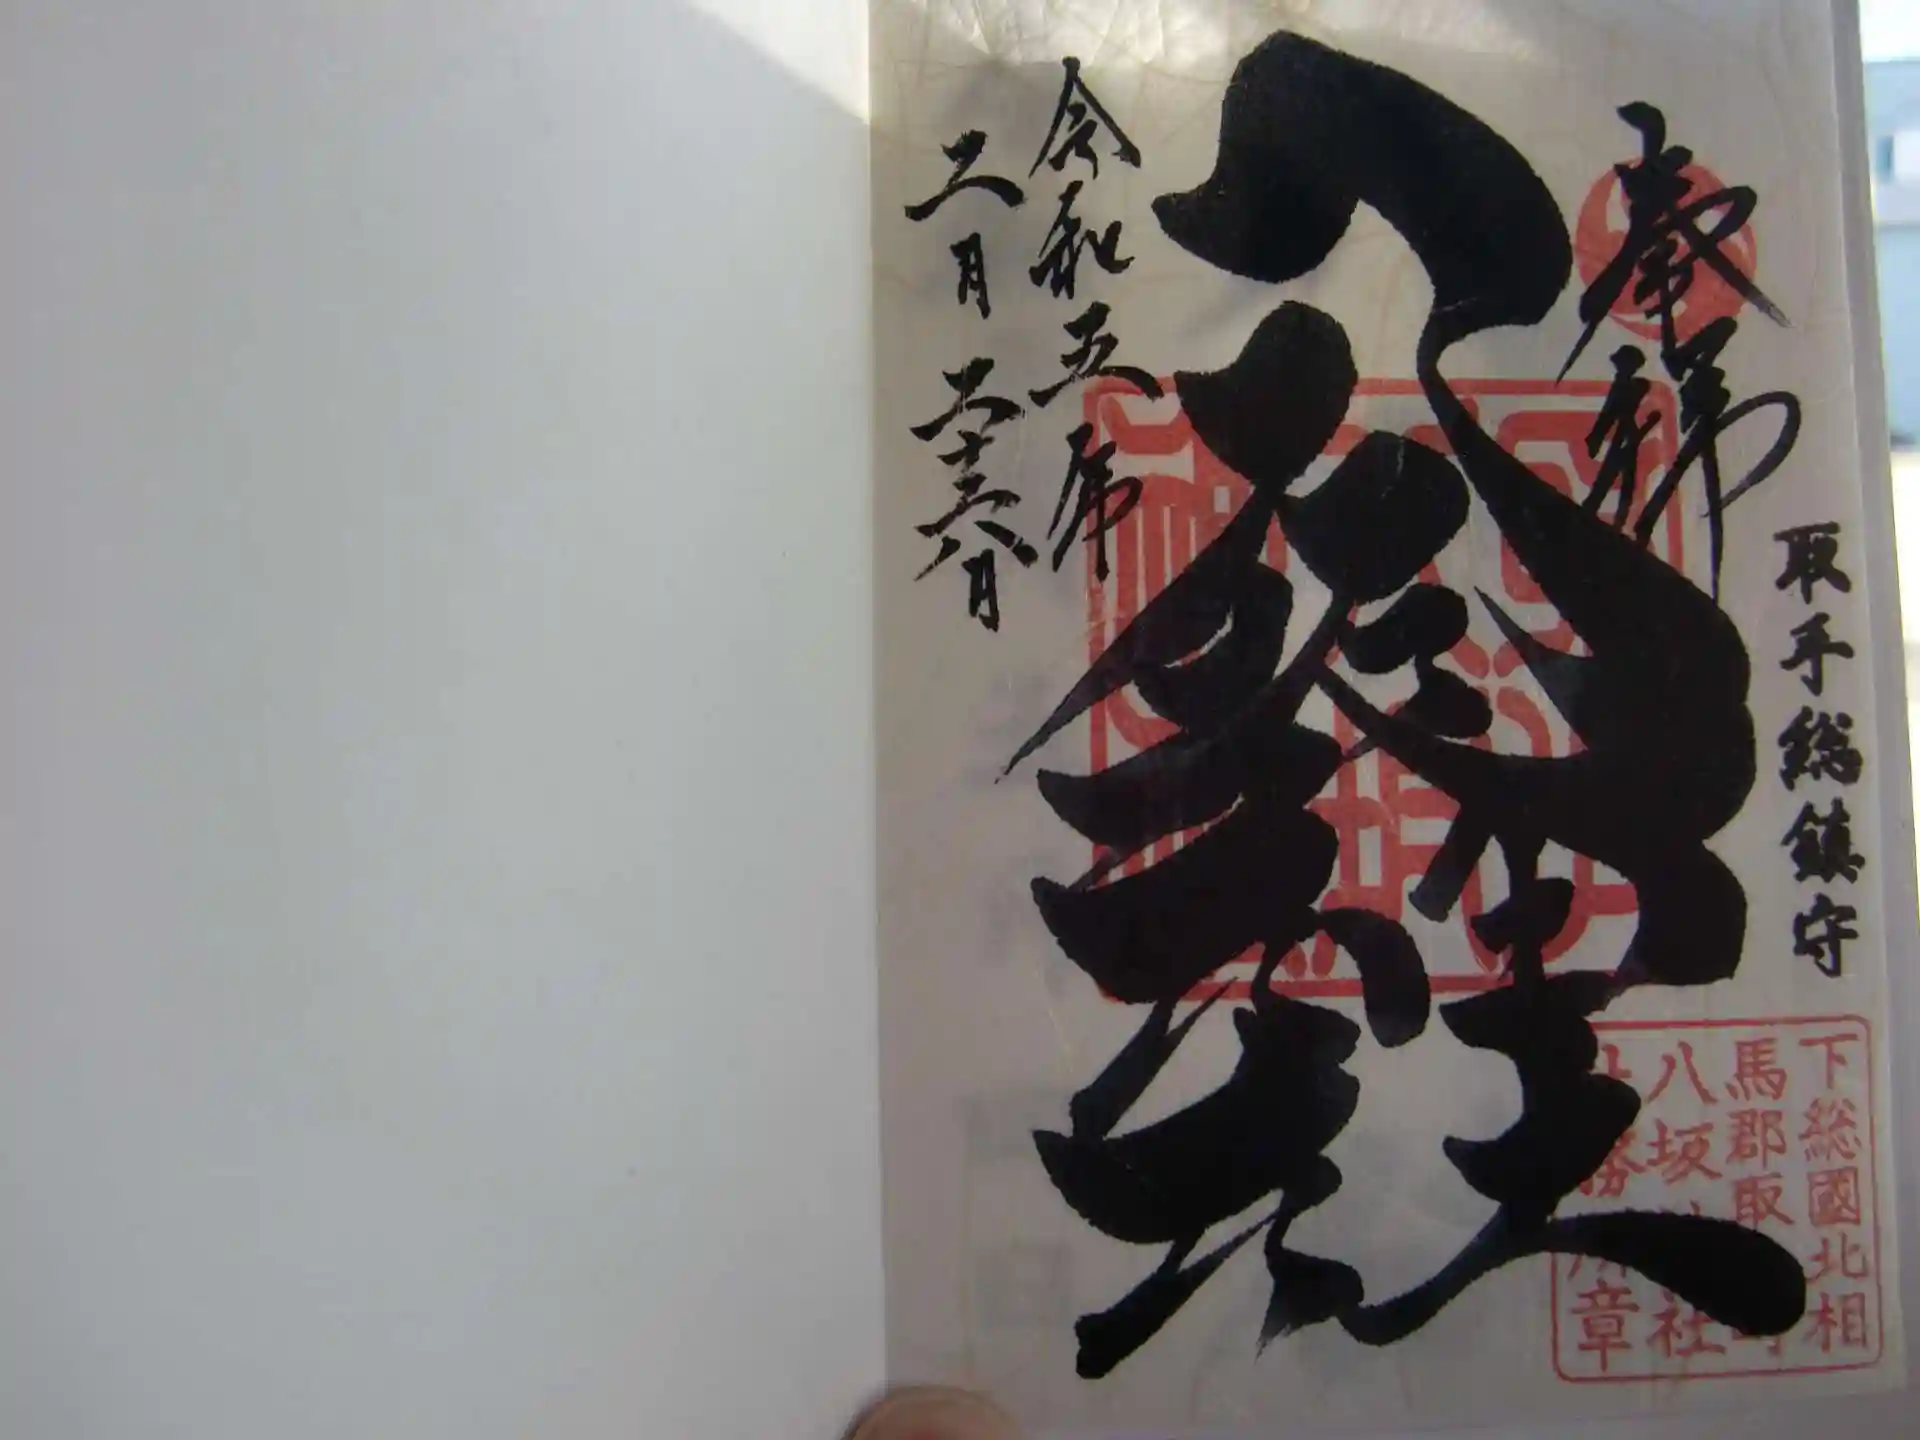 奉拝
取手総鎮守
八坂神社
令和五年
二月二十六日
下総國北相
馬郡取手町
八坂神社
社務所章